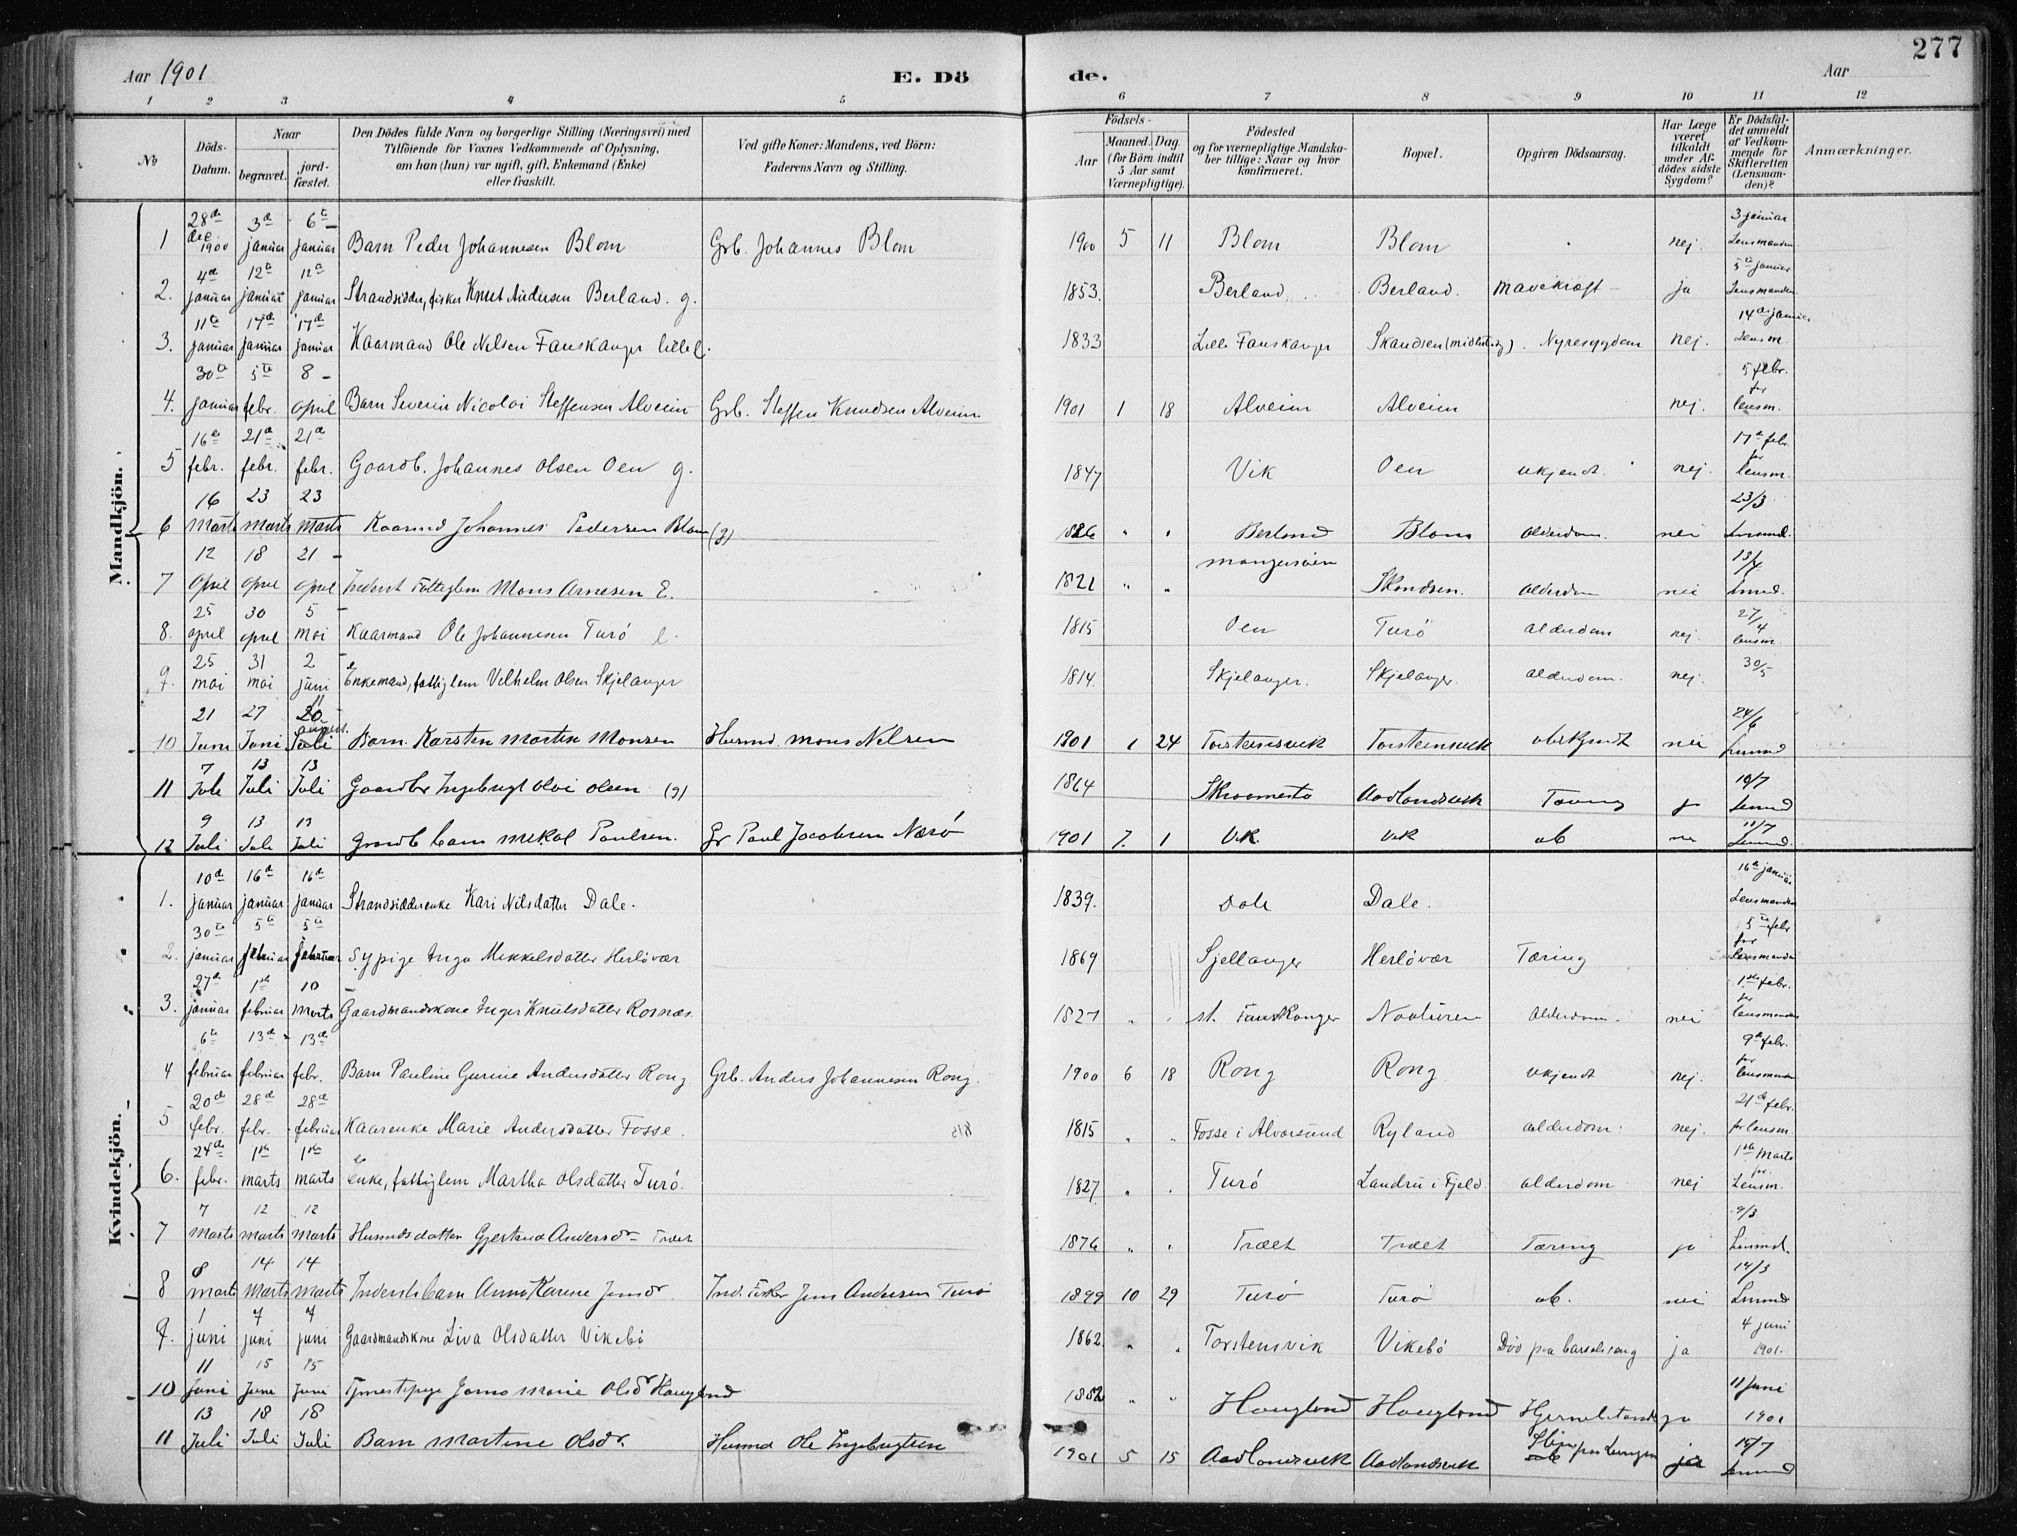 277
Aar 1901 E. Dö de. Aar
1 2 3 4 5 6 7 8 9 10 11 12
No
Döds-Datum.
Naar
begravet.
jord-fæstet.
Den Dödes fulde Navn og borgerlige Stilling (Næringsvei) med
Tilföiende for Voxnes Vedkommende af Oplysning,
om han (hun) var ugift, gift, Enkemand (Enke)
eller fraskilt.
Ved gifte Koner: Mandens, ved Börn:
Faderens Navn og Stilling.
Födsels-
Aar
Maaned. Dag.
(for Börn indtil
5 Aar samt
Værnepligtige).
Födested
og for værnepligtige Mandska-
ber tillige: Naar og hvor
konfirmeret.
Bopæl.
Opgiven Dödsaarsag.
Har Læge
været
tilkaldt
under Af-
dödes sidste
Sygdom?
Er Dödsfal-
det anmeldt
af Vedkom-
mende for
Skifteretten
(Lensman-
den)?
Anmærkninger.
Mandkjön.
1 28de dec. 1900 3d januar 6te januar Barn Peder Johannesen Blom Grb. Johannes Blom 1900 5 11 Blom Blom nej. 3 januar Lensmanden
2. 4d januar 12te januar 12te januar Strandsidder, fisker Knut Andersen Berland. g. 1853. Berland Berland. Mavekræft ja 5te januar Lensmanden
3. 11te januar 17de januar 17de januar Kaarmand Ole Nilsen Fanskanger lille 1833 Lille Fanskanger Skandsen Nyresygdom nej. 14de januar Lensm.
4. 30te januar 5te febr. 8 april Barn Severin Nicolai Steffensen Alveim Grb. Steffen Knudsen Alveim 1901 1 18 Alveim Alveim nej. 5 febr. for lensm.
5 16de febr. 21de febr. 21de febr. Gaardb. Johannes Olsen Oen g. 1847 Vik Oen ukjendt. nej. 17de febr. for lensm.
6 16 marts 23 marts 23 marts Kaarmd Johannes Pedersen Blom (g) 1826 " " Berland Blom alderdom. nei 23/3 Lensmd.
7 12 april 18 april 21 april Inderst Fattiglem Mons Arnesen E. 1821 " " Mangersöen Skandsen. alderdom nei 13/4 Lensmd.
8. 25 april 30 april 5 mai Kaarmand Ole Johannesen Turö 1815 Oen Turö alderdom nej. 27/4 lensm.
9. 25 mai 31 mai 2 juni Enkemand, fattiglem Vilhelm Olsen Skjelanger 1814. Skjelanger. Skjelanger. alderdom. nej. 30/5
10 21 Juni 27 Juni august. Barn Karsten Martin Monsen Husmd. Mons Nilsen 1901 1 24 Torstensvik Torstensvik ubekjendt nei 24/6 Lensmd
11 7 Juli 13 Juli 13 Juli Gaardbr Ingebrigt Olai Olsen (g) 1864 Skraamestø Aadlandsvik Tæring 10/7 Lensmd
12 9 Juli 13 Juli 13 Juli Gaardb barn Mikal Paulsen. Gr Paul Jacobsen Næsö 1901 7. 1 Vik Vik ub 11/7 Lensmd.
Kvindekjön.
1. 10de januar 16de januar 16de januar Strandsidderenke Kari Nilsdatter Dale. 1839. Dale Dale. 16de januar Lensmanden
2. 30te januar 5te februar 5te februar Sypige Inga Mikkelsdatter Herlövær 1869 Sjellanger Herlövær Tæring 5te febr for Lensmanden
3. 27de januar 1ste februar 10 marts Gaardmandskone Inger Knutsdatter Rosnæs. 1827 " " st. Fanskanger alderdom. nei 1ste febr. for lensmanden
4 6te februar 13de februar 13de febr. Barn Pauline Gurine Andersdatter Rong Grb. Anders Johannesen Rong. 1900 6 18 Rong Rong ukjendt nej. 9de febr. for lensmanden
5 20de febr. 28de febr. 28de februar Kaarenke Marie Andersdatter Fosse. 1815 " " Fosse i Alversund Ryland alderdom. nej. 21de febr. for lensm.
6. 24de febr. 1ste marts 1ste marts Enke, fattiglem Martha Olsdatter Turö. 1827 " " Turö Landrö i Fjeld. alderdom nej 1ste Marts for Lensm.
7 7 marts 12 marts 12 marts Husmdsdatter Gjertrud Andersdr Træet 1876 " " Træet Træet Tæring ja 9/3 Lensmd.
8 8 marts 14 Marts 14 marts Inderstsbarn Anna Karine Jensdr Ind. Fisker Jens Andersen Turö 1899 10 29 Turö Turö ub. nei 14/3 Lensmd
9. 1 juni 7 juni 7 juni Gaardmandskone Liva Olsdatter Vikebö 1862 " " Torstensvik Vikebö Död paa barselseng ja 4 juni 1901.
10 11 Juni 15 Juni 15 Juni Tjenestepige Marie Olsd Haugland 1852 " " Haugland Haugland ja 11 Juni 1901
11 13 Juli 18 Juli 18 Juli Barn Martine Olsdr. Husmd Ole Ingebrigtsen 1901 5 15 Aadlandsvik Aadlandsvik Slim paa Lungen ja 15/7 Lensmd